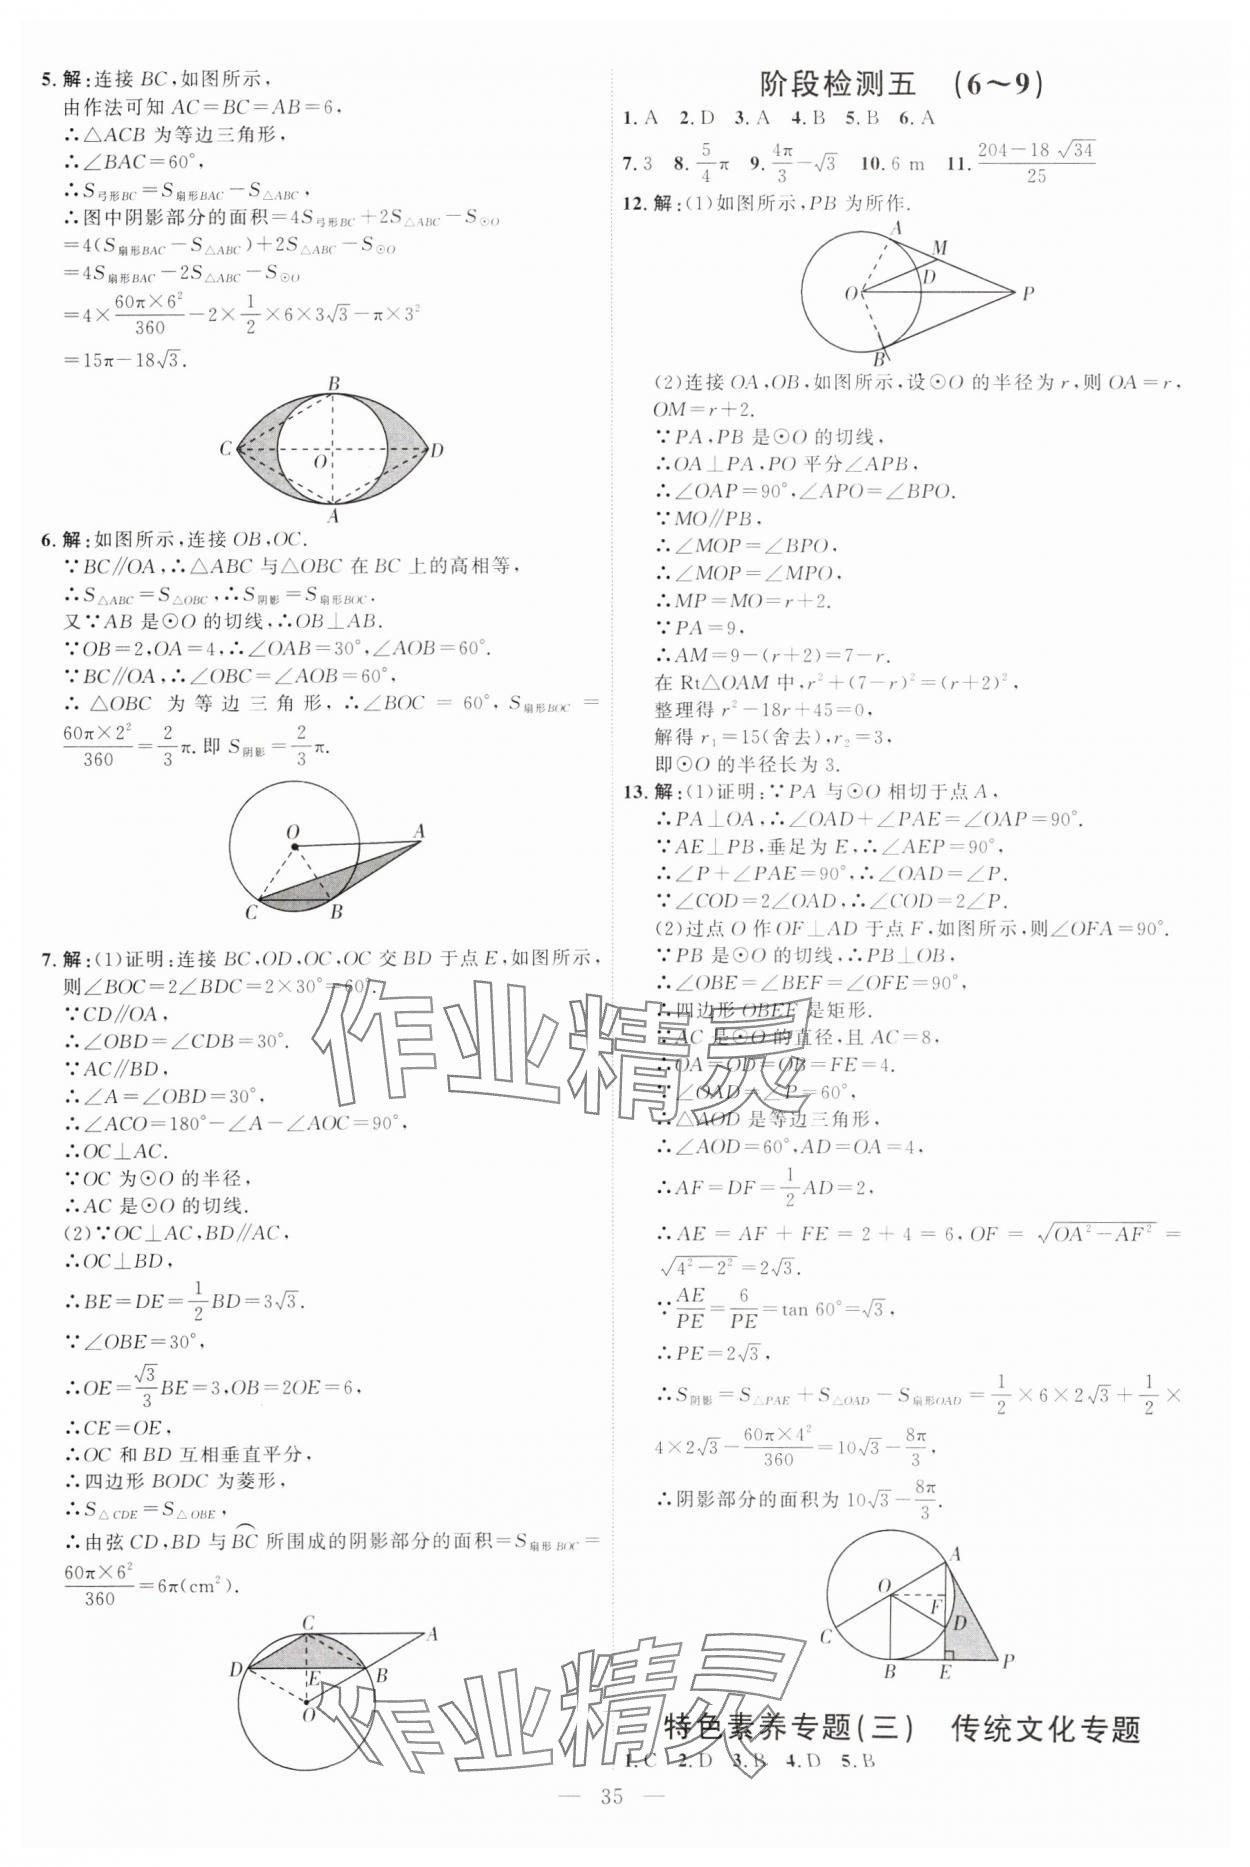 5. 解:连接 BC,如图所示,
由作法可知 AC=BC=AB=6,
∴△ACB 为等边三角形,
∴∠BAC=60°,
∴S弓形BC=S扇形BAC-S△ABC,
∴图中阴影部分的面积=4S弓形BC+2S△ABC-S⊙O
=4(S扇形BAC-S△ABC)+2S△ABC-S⊙O
=4S扇形BAC-2S△ABC-S⊙O
=4×60π×6²/360-2×1/2×6×3√3-π×3²
=15π-18√3.
B
C
O
D
A
6. 解:如图所示,连接 OB,OC.
∵BC∥OA,∴△ABC 与△OBC 在 BC 上的高相等,
∴S△ABC=S△OBC,∴S阴影=S扇形BOC.
又∵AB 是⊙O 的切线,∴OB⊥AB.
∵OB=2,OA=4,∴∠OAB=30°,∠AOB=60°.
∵BC∥OA,∴∠OBC=∠AOB=60°,
∴△OBC 为等边三角形,∴∠BOC=60°,S扇形BOC=
60π×2²/360=2/3π.即 S阴影=2/3π.
O
A
C
B
7. 解:(1)证明:连接 BC,OD,OC,OC 交 BD 于点 E,如图所示,
则∠BOC=2∠BDC=2×30°=60°.
∵CD∥OA,
∴∠OBD=∠CDB=30°.
∵AC∥BD,
∴∠A=∠OBD=30°,
∴∠ACO=180°-∠A-∠AOC=90°,
∴OC⊥AC.
∵OC 为⊙O 的半径,
∴AC 是⊙O 的切线.
(2)∵OC⊥AC,BD∥AC,
∴OC⊥BD,
∴BE=DE=1/2BD=3√3.
∵∠OBE=30°,
∴OE=√3/3BE=3,OB=2OE=6,
∴CE=OE,
∴OC 和 BD 互相垂直平分,
∴四边形 BODC 为菱形,
∴S△CDE=S△OBE,
∴由弦 CD,BD 与BC⌒所围成的阴影部分的面积=S扇形BOC=
60π×6²/360=6π(cm²).
C
A
D
E
B
O
阶段检测五 (6~9)
1. A 2. D 3. A 4. B 5. B 6. A
7. 3 8. 5/4π 9. 4π/3-√3 10. 6 m 11. (204-18√34)/25
12. 解:(1)如图所示,PB 为所作.
A
M
D
O
P
B
(2)连接 OA,OB,如图所示,设⊙O 的半径为 r,则 OA=r,
OM=r+2.
∵PA,PB 是⊙O 的切线,
∴OA⊥PA,PO 平分∠APB,
∴∠OAP=90°,∠APO=∠BPO.
∵MO∥PB,
∴∠MOP=∠BPO,
∴∠MOP=∠MPO,
∴MP=MO=r+2.
∵PA=9,
∴AM=9-(r+2)=7-r.
在 Rt△OAM 中,r²+(7-r)²=(r+2)²,
整理得 r²-18r+45=0,
解得 r₁=15(舍去),r₂=3,
即⊙O 的半径长为 3.
13. 解:(1)证明:∵PA 与⊙O 相切于点 A,
∴PA⊥OA,∴∠OAD+∠PAE=∠OAP=90°.
∵AE⊥PB,垂足为 E,∴∠AEP=90°,
∴∠P+∠PAE=90°,∴∠OAD=∠P.
∵∠COD=2∠OAD,∴∠COD=2∠P.
(2)过点 O 作 OF⊥AD 于点 F,如图所示,则∠OFA=90°.
∵PB 是⊙O 的切线,∴PB⊥OB,
∴∠OBE=∠BEF=∠OFE=90°,
∴四边形 OBEF 是矩形.
∵AC 是⊙O 的直径,且 AC=8,
∴OA=OD=OB=FE=4.
∵∠OAD=∠P=60°,
∴△AOD 是等边三角形,
∴∠AOD=60°,AD=OA=4,
∴AF=DF=1/2AD=2,
∴AE=AF+FE=2+4=6,OF=√(OA²-AF²)=
√(4²-2²)=2√3.
∵AE/PE=6/PE=tan 60°=√3,
∴PE=2√3,
∴S阴影=S△PAE+S△OAD-S扇形OAD=1/2×6×2√3+1/2×
4×2√3-60π×4²/360=10√3-8π/3,
∴阴影部分的面积为 10√3-8π/3.
A
O
F
D
C
B
E
P
特色素养专题(三) 传统文化专题
1. C 2. D 3. B 4. D 5. B
— 35 —
作业精灵
作业精灵